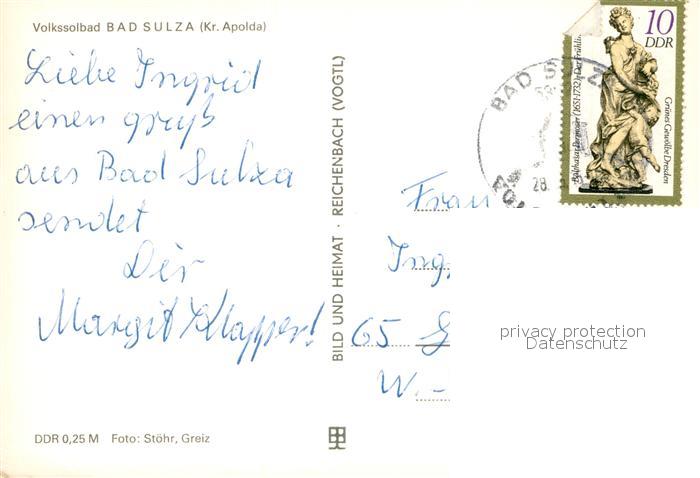 Volkssolbad BAD SULZA (Kr. Apolda)
Liebe Ingrid
einen gruß
aus Bad Sulza
sendet
Dir
Margit Klappert
DDR 0,25 M Foto: Stöhr, Greiz
BILD UND HEIMAT · REICHENBACH (VOGTL)
BAD S
28.
10
DDR
Balthasar Permoser (1651-1732): Der Frühling
Grünes Gewölbe Dresden
Frau
Ing
65 G
W.-
privacy protection
Datenschutz